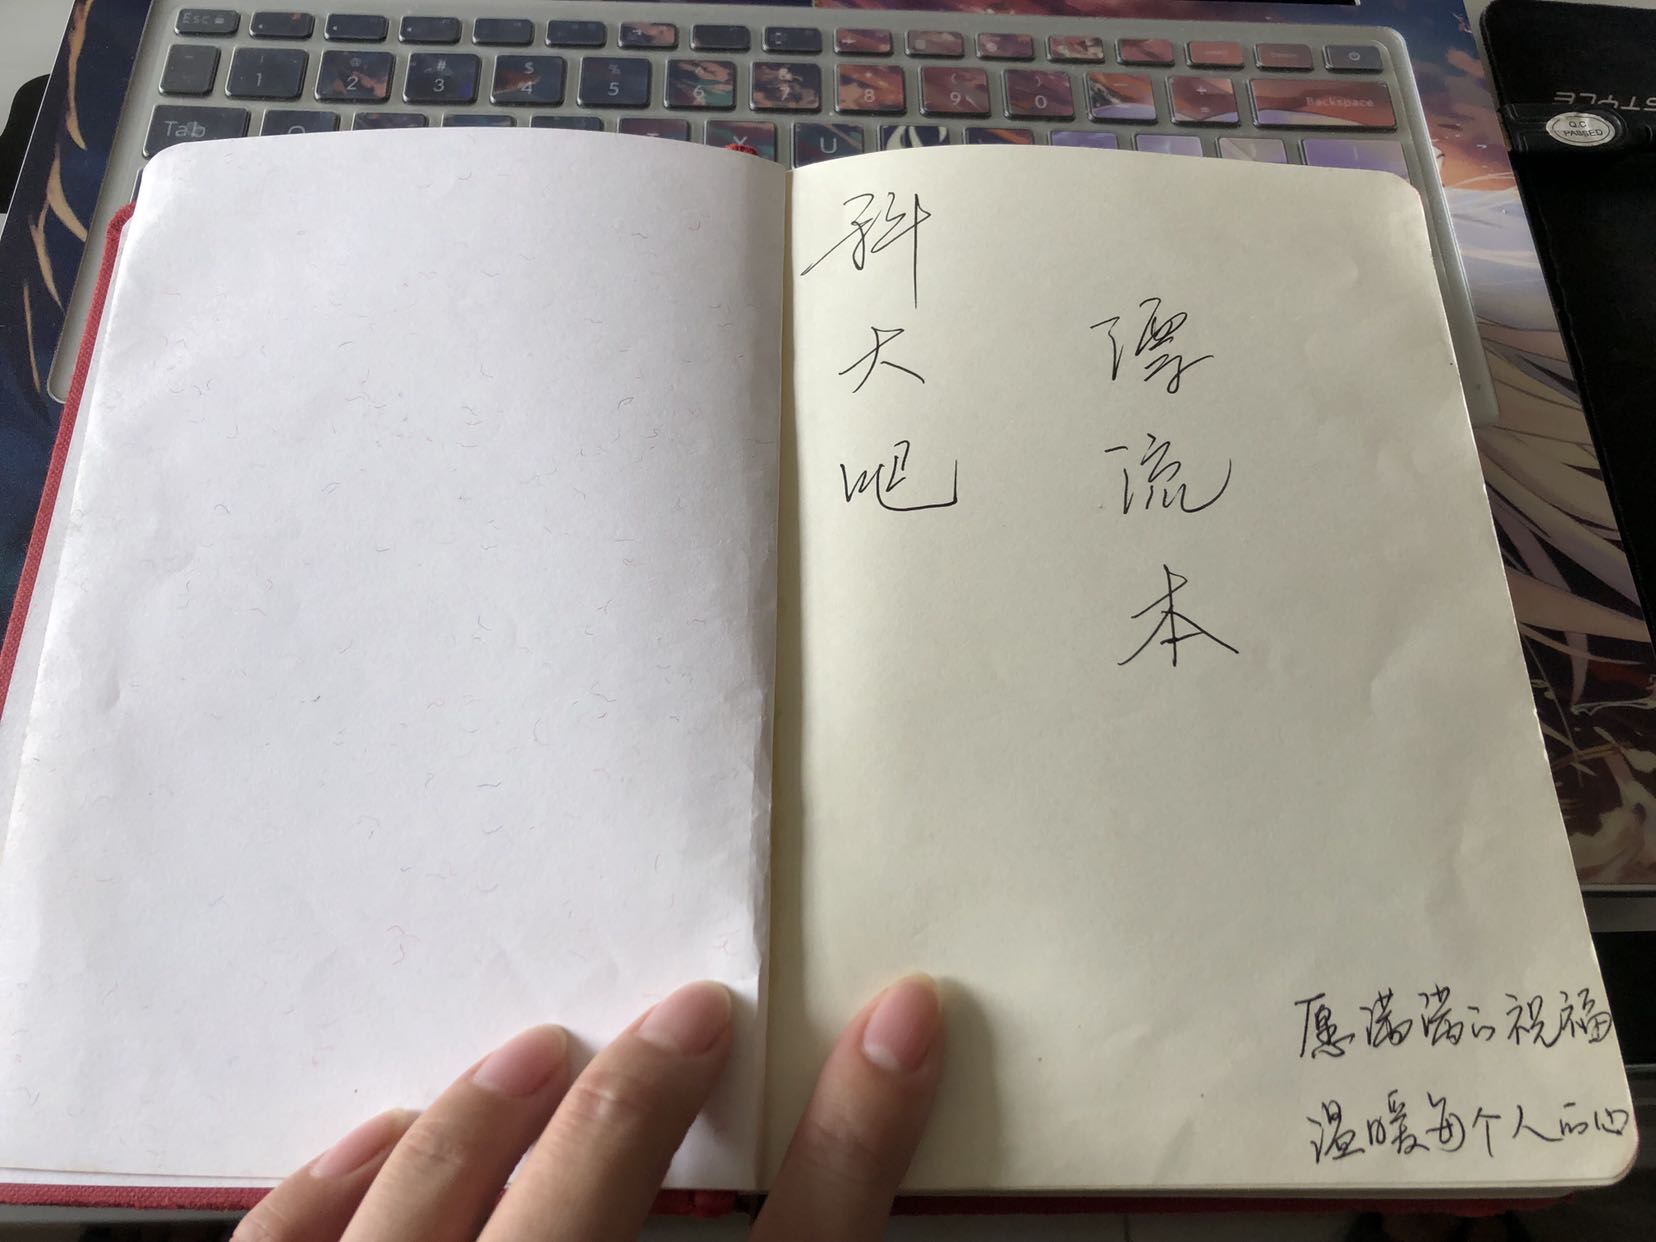 Esc
1 2 3 4 5 6 7 8 9 0 Backspace
@ # $ %
Tab Y U
STYLE
Q.C.
PASSED
科大吧
漂流本
愿满满的祝福
温暖每个人的心